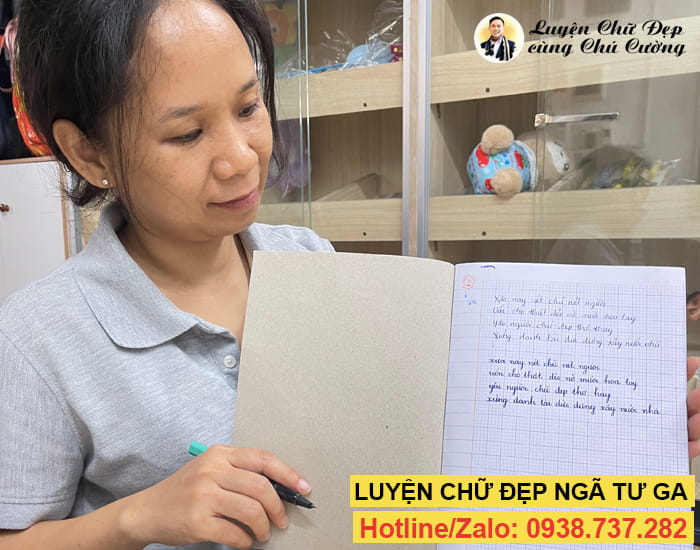 Luyện Chữ Đẹp
cùng Chú Cường
Xưa nay nét chữ nết người
Uốn cho thật dẻo nở mười hoa tay
Yêu người chữ đẹp thơ hay
Xứng danh tài đức dựng xây nước nhà
xưa nay nét chữ nết người
uốn cho thật dẻo nở mười hoa tay
yêu người chữ đẹp thơ hay
xứng danh tài đức dựng xây nước nhà
LUYỆN CHỮ ĐẸP NGÃ TƯ GA
Hotline/Zalo: 0938.737.282